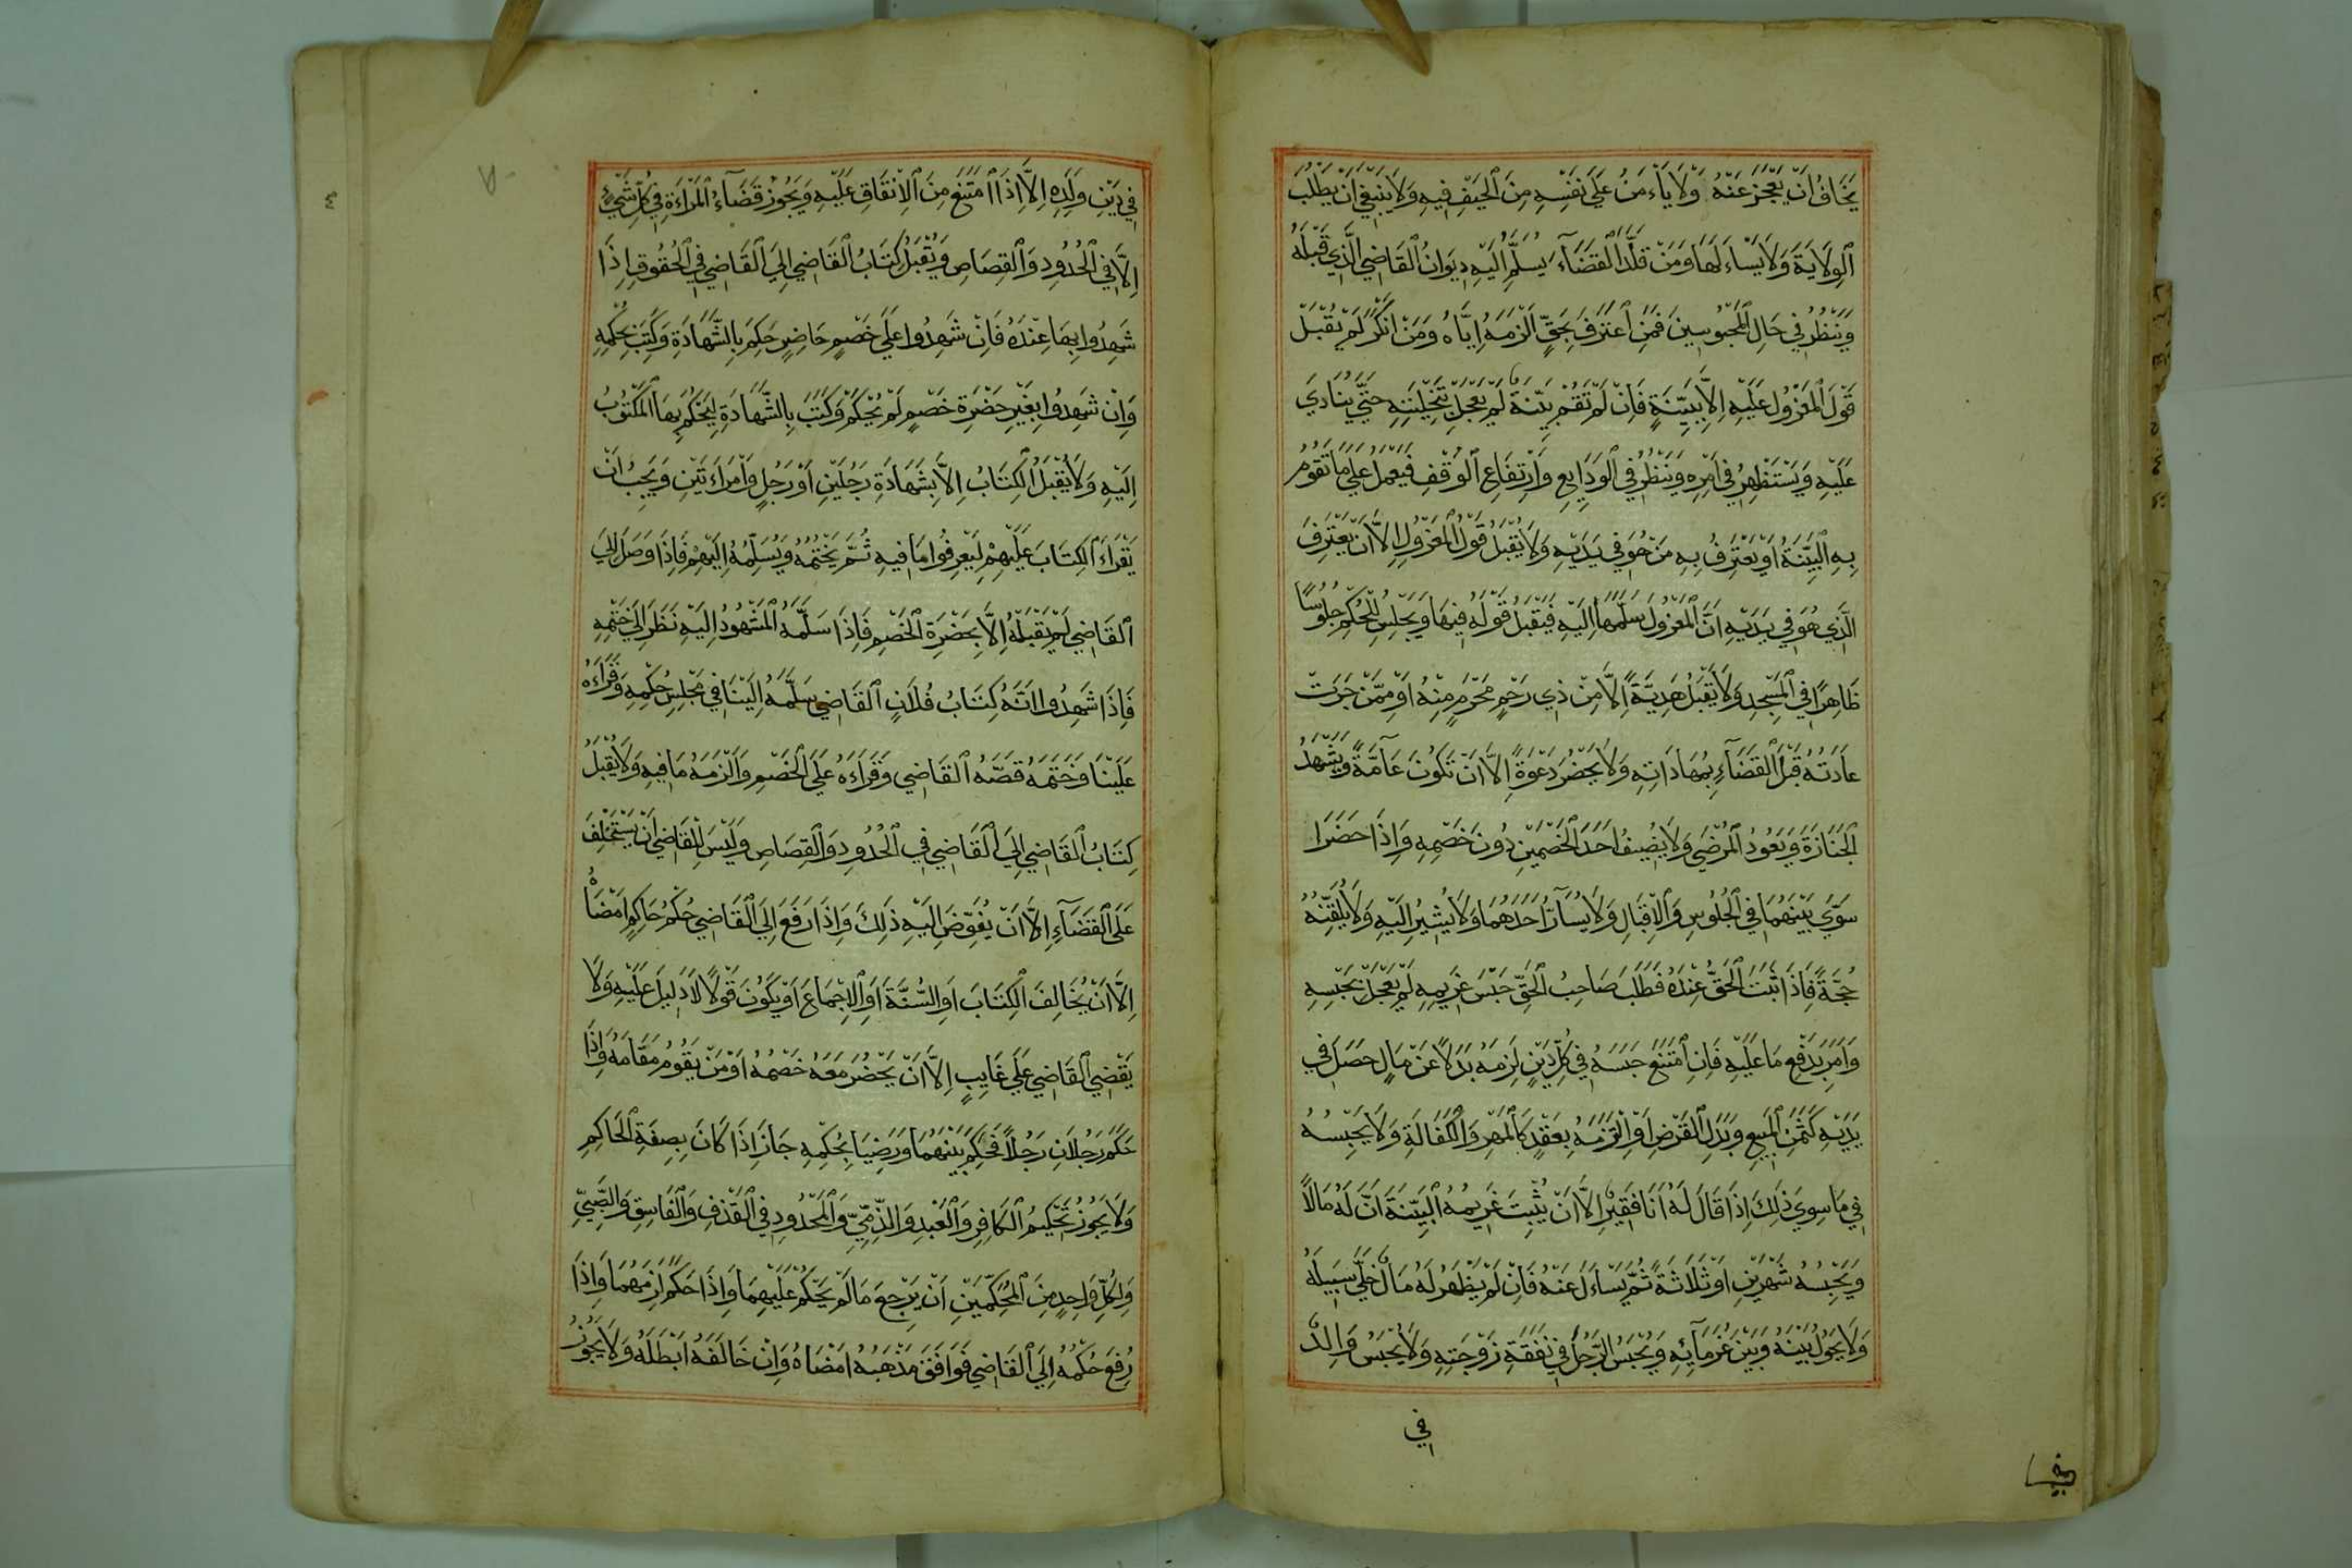 يَخَافُ اَنْ يَعْجِزَ عَنْهُ وَلَا يَاْءمَنُ عَلَى نَفْسِهِ مِنَ الْحَيْفِ فِيهِ وَلَا يَنْبَغِي اَنْ يَطْلُبَ
الْوِلَايَةَ وَلَا يَسْاَءَلَهَا وَمَنْ قُلِّدَ الْقَضَآءَ يُسَلَّمُ اِلَيْهِ دِيوَانُ الْقَاضِي الَّذِي قَبْلَهُ
وَيَنْظُرُ فِي حَالِ الْمَحْبُوسِينَ فَمَنِ اعْتَرَفَ بِحَقٍّ اَلْزَمَهُ اِيَّاهُ وَمَنْ اَنْكَرَ لَمْ يُقْبَلْ
قَوْلُ الْمَعْزُولِ عَلَيْهِ اِلَّا بِبَيِّنَةٍ فَاِنْ لَمْ تَقُمْ بَيِّنَةٌ لَمْ يُعَجِّلْ بِتَخْلِيَتِهِ حَتَّي يُنَادِيَ
عَلَيْهِ وَيَسْتَظْهِرُ فِي اَمْرِهِ وَيَنْظُرُ فِي الْوَدَايِعِ وَارْتِفَاعِ الْوُقُفِ فَيَعْمَلُ عَلَي مَا تَقُومُ
بِهِ الْبَيِّنَةُ اَوْ يَعْتَرِفُ بِهِ مَنْ هُوَ فِي يَدَيْهِ وَلَا يُقْبَلُ قَوْلُ الْمَعْزُولِ اِلَّا اَنْ يَعْتَرِفَ
الَّذِي هُوَ فِي يَدَيْهِ اَنَّ الْمَعْزُولَ سَلَّمَهَا اِلَيْهِ فَيُقْبَلُ قَوْلُهُ فِيهَا وَيَجْلِسُ لِلْحُكْمِ جُلُوسًا
ظَاهِرًا فِي الْمَسْجِدِ وَلَا يَقْبَلُ هَدِيَّةً اِلَّا مِنْ ذِي رَحْمٍ مَحْرَمٍ مِنْهُ اَوْ مِمَّنْ جَرَتْ
عَادَتُهُ قَبْلَ الْقَضَآءِ بِمُهَادَاتِهِ وَلَا يَحْضُرُ دَعْوَةً اِلَّا اَنْ تَكُونَ عَآمَّةً وَيَشْهَدُ
الْجَنَازَةَ وَيَعُودُ الْمَرْضَي وَلَا يُضِيفُ اَحَدَ الْخَصْمَيْنِ دُونَ خَصْمِهِ وَاِذَا حَضَرَا
سَوَّي بَيْنَهُمَا فِي الْجُلُوسِ وَالْاِقْبَالِ وَلَا يُسَآرُّ اَحَدَهُمَا وَلَا يُشِيرُ اِلَيْهِ وَلَا يُلَقِّنُهُ
حُجَّةً فَاِذَا ثَبَتَ الْحَقُّ عِنْدَهُ فَطَلَبَ صَاحِبُ الْحَقِّ حَبْسَ غَرِيمِهِ لَمْ يُعَجِّلْ بِحَبْسِهِ
وَاَمَرَ بِدَفْعِ مَا عَلَيْهِ فَاِنِ امْتَنَعَ حَبَسَهُ فِي كُلِّ دَيْنٍ لَزِمَهُ بَدَلًا عَنْ مَالٍ حَصَلَ فِي
يَدَيْهِ كَثَمَنِ الْمَبِيعِ وَبَدَلِ الْقَرْضِ اَوْ اِلْتَزَمَهُ بِعَقْدٍ كَالْمَهْرِ وَالْكَفَالَةِ وَلَا يَحْبِسُهُ
فِي مَا سِوَي ذَلِكَ اِذَا قَالَ لَهُ اَنَا فَقِيرٌ اِلَّا اَنْ يُثْبِتَ غَرِيمُهُ الْبَيِّنَةَ اَنَّ لَهُ مَالًا
وَيَحْبِسُهُ شَهْرَيْنِ اَوْ ثَلَاثَةً ثُمَّ يَسْاَءَلُ عَنْهُ فَاِنْ لَمْ يَظْهَرْ لَهُ مَالٌ خَلَّي سَبِيلَهُ
وَلَا يَحُولُ بَيْنَهُ وَبَيْنَ غُرَمَآئِهِ وَيُحْبَسُ الرَّجُلُ فِي نَفَقَةِ زَوْجَتِهِ وَلَا يُحْبَسُ وَالِدٌ
في
فِي دَيْنِ وَلَدِهِ اِلَّا اِذَا امْتَنَعَ مِنَ الْاِنْفَاقِ عَلَيْهِ وَيَجُوزُ قَضَآءُ الْمَرْاَءَةِ فِي كُلِّ شَيْءٍ
اِلَّا فِي الْحُدُودِ وَالْقِصَاصِ وَيُقْبَلُ كِتَابُ الْقَاضِي اِلَي الْقَاضِي فِي الْحُقُوقِ اِذَا
شَهِدُوا بِهَا عِنْدَهُ فَاِنْ شَهِدُوا عَلَي خَصْمٍ حَاضِرٍ حَكَمَ بِالشَّهَادَةِ وَكَتَبَ بِحُكْمِهِ
وَاِنْ شَهِدُوا بِغَيْرِ حَضْرَةِ خَصْمٍ لَمْ يَحْكُمْ وَكَتَبَ بِالشَّهَادَةِ لِيَحْكُمَ بِهَا الْمَكْتُوبُ
اِلَيْهِ وَلَا يُقْبَلُ الْكِتَابُ اِلَّا بِشَهَادَةِ رَجُلَيْنِ اَوْ رَجُلٍ وَامْرَاَءَتَيْنِ وَيَجِبُ اَنْ
يَقْرَاَءَ الْكِتَابَ عَلَيْهِمْ لِيَعْرِفُوا مَا فِيهِ ثُمَّ يَخْتِمُهُ وَيُسَلِّمُهُ اِلَيْهِمْ فَاِذَا وَصَلَ اِلَي
الْقَاضِي لَمْ يَقْبَلْهُ اِلَّا بِحَضْرَةِ الْخَصْمِ فَاِذَا سَلَّمَهُ الْمَشْهُودُ اِلَيْهِ نَظَرَ اِلَي خَتْمِهِ
فَاِذَا شَهِدُوا اَنَّهُ كِتَابُ فُلَانٍ الْقَاضِي سَلَّمَهُ اِلَيْنَا فِي مَجْلِسِ حُكْمِهِ وَقَرَاَءَهُ
عَلَيْنَا وَخَتَمَهُ فَضَّهُ الْقَاضِي وَقَرَاَءَهُ عَلَي الْخَصْمِ وَاَلْزَمَهُ مَا فِيهِ وَلَا يُقْبَلُ
كِتَابُ الْقَاضِي اِلَي الْقَاضِي فِي الْحُدُودِ وَالْقِصَاصِ وَلَيْسَ لِلْقَاضِي اَنْ يَسْتَخْلِفَ
عَلَي الْقَضَآءِ اِلَّا اَنْ يُفَوَّضَ اِلَيْهِ ذَلِكَ وَاِذَا رَفَعَ اِلَي الْقَاضِي حُكْمُ حَاكِمٍ اَمْضَاهُ
اِلَّا اَنْ يُخَالِفَ الْكِتَابَ اَوِ السُّنَّةَ اَوِ الْاِجْمَاعَ اَوْ يَكُونَ قَوْلًا لَا دَلِيلَ عَلَيْهِ وَلَا
يَقْضِي الْقَاضِي عَلَي غَايِبٍ اِلَّا اَنْ يَحْضُرَ مَعَهُ خَصْمُهُ اَوْ مَنْ يَقُومُ مَقَامَهُ وَاِذَا
حَكَّمَ رَجُلَانِ رَجُلًا فَحَكَمَ بَيْنَهُمَا وَرَضِيَا بِحُكْمِهِ جَازَ اِذَا كَانَ بِصِفَةِ الْحَاكِمِ
وَلَا يَجُوزُ تَحْكِيمُ الْكَافِرِ وَالْعَبْدِ وَالذِّمِّيِّ وَالْمَحْدُودِ فِي الْقَذْفِ وَالْفَاسِقِ وَالصَّبِيِّ
وَلِكُلِّ وَاحِدٍ مِنَ الْمُحَكِّمَيْنِ اَنْ يَرْجِعَ مَا لَمْ يَحْكُمْ عَلَيْهِمَا وَاِذَا حَكَمَ لَزِمَهُمَا وَاِذَا
رُفِعَ حُكْمُهُ اِلَي الْقَاضِي فَوَافَقَ مَذْهَبَهُ اَمْضَاهُ وَاِنْ خَالَفَهُ اَبْطَلَهُ وَلَا يَجُوزُ